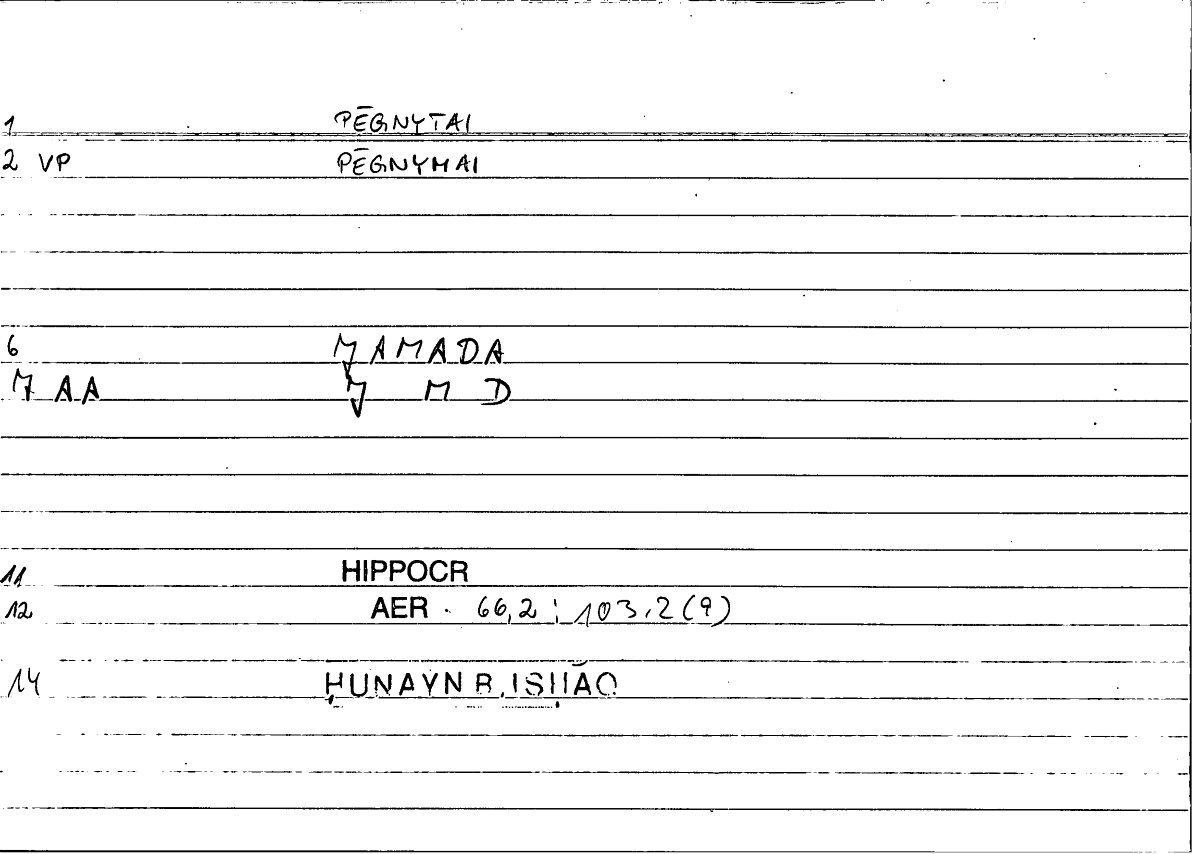 1 PĒGNYTAI
2 VP PĒGNYMAI
6 J̌AMADA
7 AA J̌ M D
11 HIPPOCR
12 AER 66,2 ; 103,2 (9)
14 ḤUNAYN B. ISḤĀQ